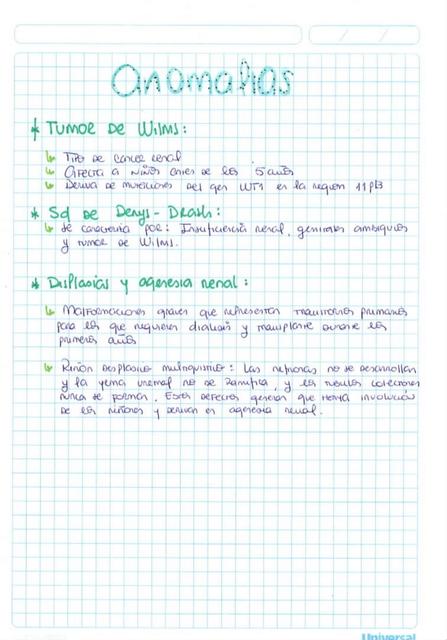 Anomalias
* TUMOR DE Wilms:
↳ Tipo de cancer renal
↳ Afecta a niños antes de los 5 años
↳ Deriva de mutaciones del gen WT1 en la region 11p13
* Sd de Denys-Drash:
↳ se caracteriza por: Insuficiencia renal, genitales ambiguos
y tumor de Wilms.
* Displasias y agenesia renal:
↳ Malformaciones graves que representan primarios
para los que requieren dialisis y transplante durante los
primeros años
↳ Riñon displasico multiquistico: Las nefronas no se desarrollan
y la yema ureteral no se ramifica, y los tubulos colectores
nunca se forman. Estos defectos generan que haya involucion
de los riñones y derivan en agenesia renal.
Universal